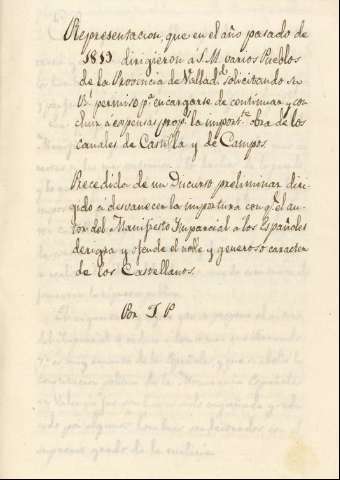 Representacion, que en el año pasado de
1813 dirigieron a S. M. varios Pueblos
de la Provincia de Vallad.d solicitando su
R.l permiso p.a encargarse de continuar y con
cluir a expensas prop.s la import.te obra de los
canales de Castilla y de Campos.
Precedida de un Discurso preliminar diri
gido a desvanecer la impostura con q.e el au
tor del Manifiesto Imparcial a los Españoles
denigra y ofende el noble y generoso caracter
de los Castellanos.
Por J. P.